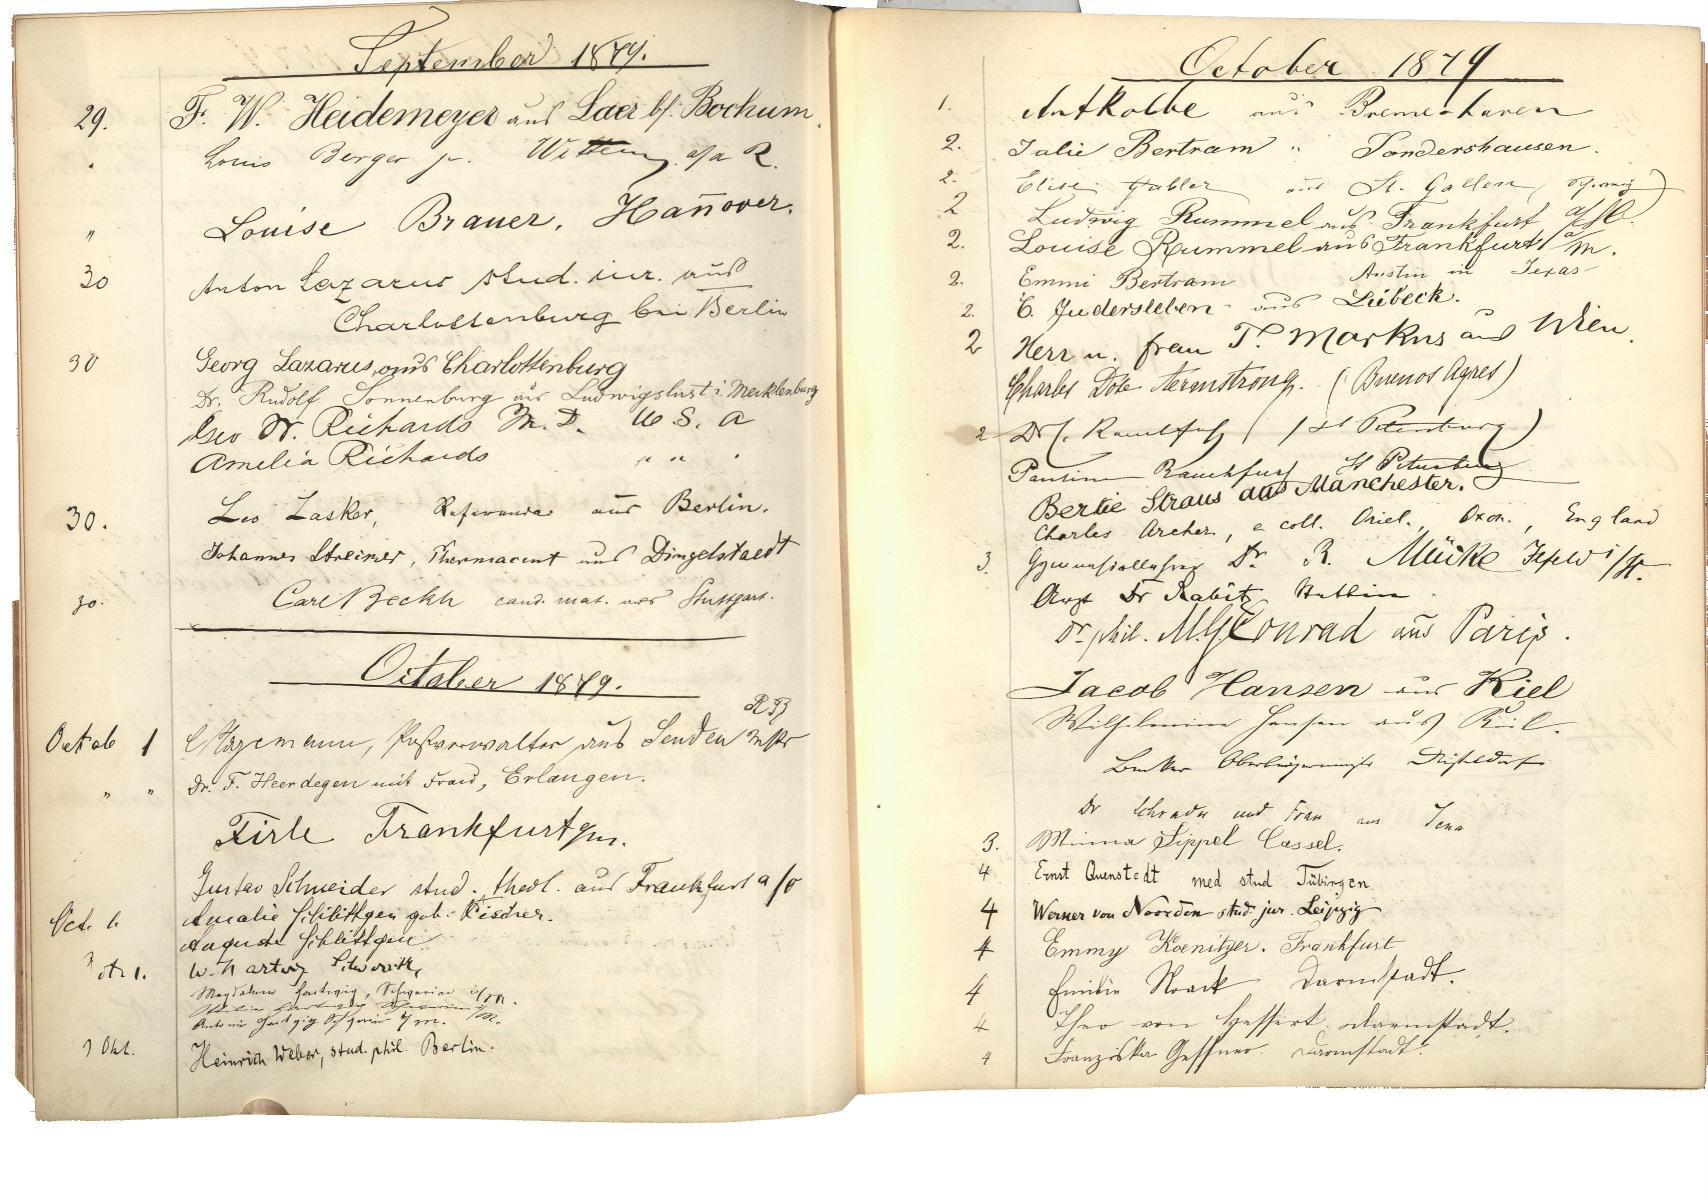 September 1879.
29. F. W. Heidemeyer aus Laer b/. Bochum.
" Louis Berger jr. Witten a/d R.
" Louise Brauer, Hannover.
30 Anton Lazarus stud. iur. aus
Charlottenburg bei Berlin
30 Georg Lazarus, aus Charlottenburg
Dr. Rudolf Sonnenburg aus Ludwigslust i. Mecklenburg
Geo W. Richards M. D. U. S. A
Amelia Richards " " "
30. Leo Lasker, Referendar aus Berlin.
Johannes Streimer, Pharmaceut aus Dingelstaedt
30. Carl Beckh cand. mat. aus Stuttgart.
October 1879.
Octob 1 Hagemann, Postverwalter aus Senden
" " Dr. F. Heerdegen mit Frau, Erlangen.
Firle Frankfurt
Gustav Schneider stud. theol. aus Frankfurt a/O
Oct. 1. Amalie Schlittgen geb. Fischer.
Auguste Schlittgen
W. Hartwig Schwerin,
Magdalene Hartwig, Schwerin i/M.
Antonie Hartwig Schwerin i/M.
1 Okt. Heinrich Weber, stud. phil. Berlin.
October 1879
1. Ant Kolbe aus Bremerhaven
2. Julie Bertram " Sondershausen.
2. Elise Gabler aus St. Gallen (Schweiz)
2 Ludwig Rummel aus Frankfurt a/M.
2. Louise Rummel aus Frankfurt a/m.
2. Emmi Bertram Austin in Texas
2. C. Judersleben aus Lübeck.
2 Herr u. Frau T. Markus aus Wien.
Charles Armstrong. (Buenos Ayres)
2 Dr C. Rauchfuss (St Petersburg)
Pauline Rauchfuss St Petersburg
Bertie Straus aus Manchester.
Charles Archer, e coll. Oriel., Oxon., England
3. Gymnasiallehrer Dr. R. Mücke Ilfeld i/H.
Arzt Dr Rabitz Stettin.
Dr. phil. M. G. Conrad aus Paris.
Jacob Hansen aus Kiel
Wilhelmine Hansen aus Kiel.
Becker Oberbürgermeister Düsseldorf
Dr Schrader und Frau aus Jena
3. Minna Sippel Cassel.
4 Ernst Quenstedt med stud Tübingen.
4 Werner von Noorden stud. jur. Leipzig
4 Emmy Koenitzer. Frankfurt
4 Emilie Noack Darmstadt.
4 Theo von Hessert Darmstadt.
4 Franziska Gessner. Darmstadt.